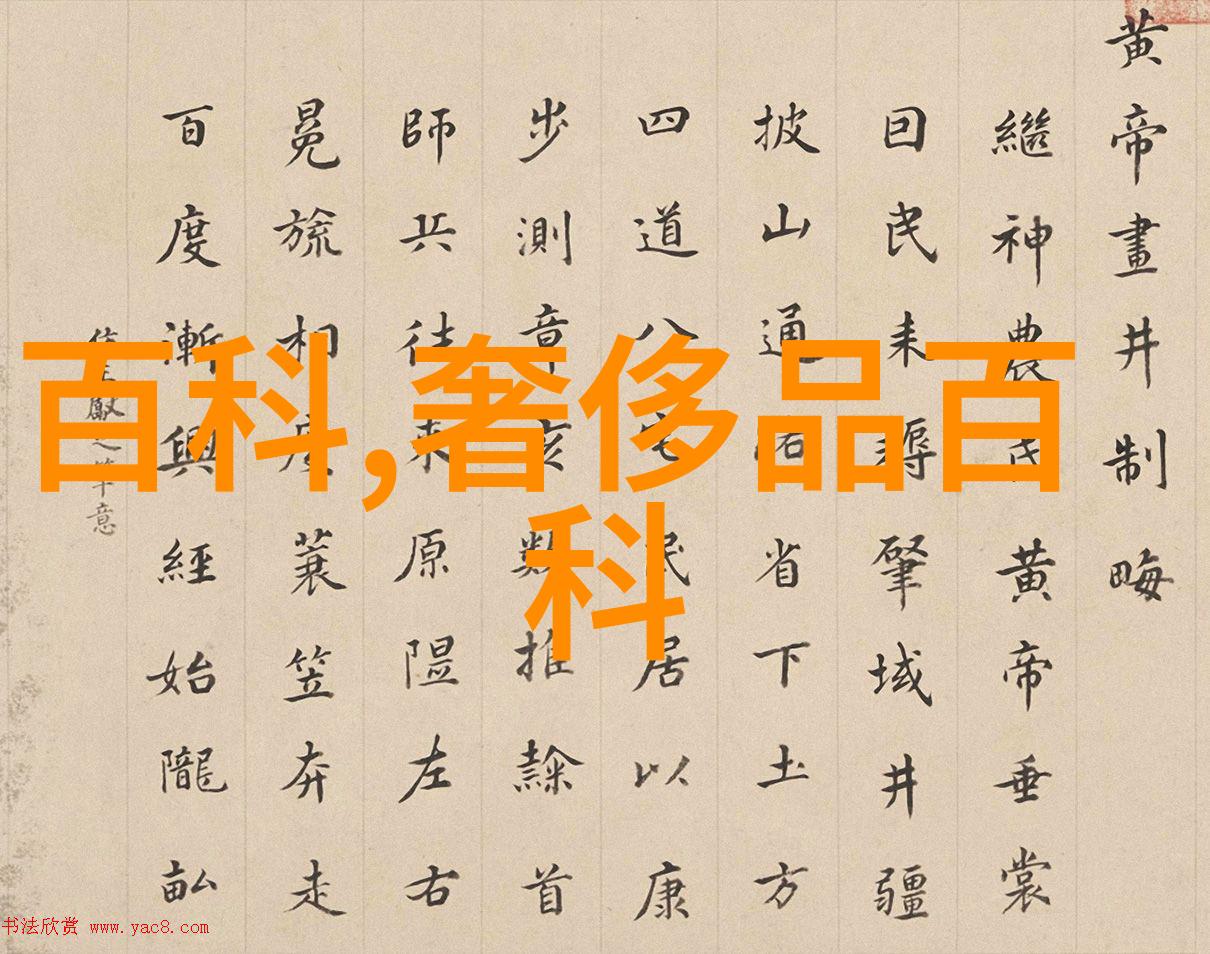 百科,奢侈品百
科
黄帝畫井制畮
繼神農氏黄帝垂裳
囙民耒耨肇域井疆
披山通道省下土方
四道八宅民居以康
步測章亥數推隸首
師兵往來原隰左右
冕旒相度蓑笠奔走
百度漸興經始隴畝
獻之筆意
书法欣赏 www.yac8.com